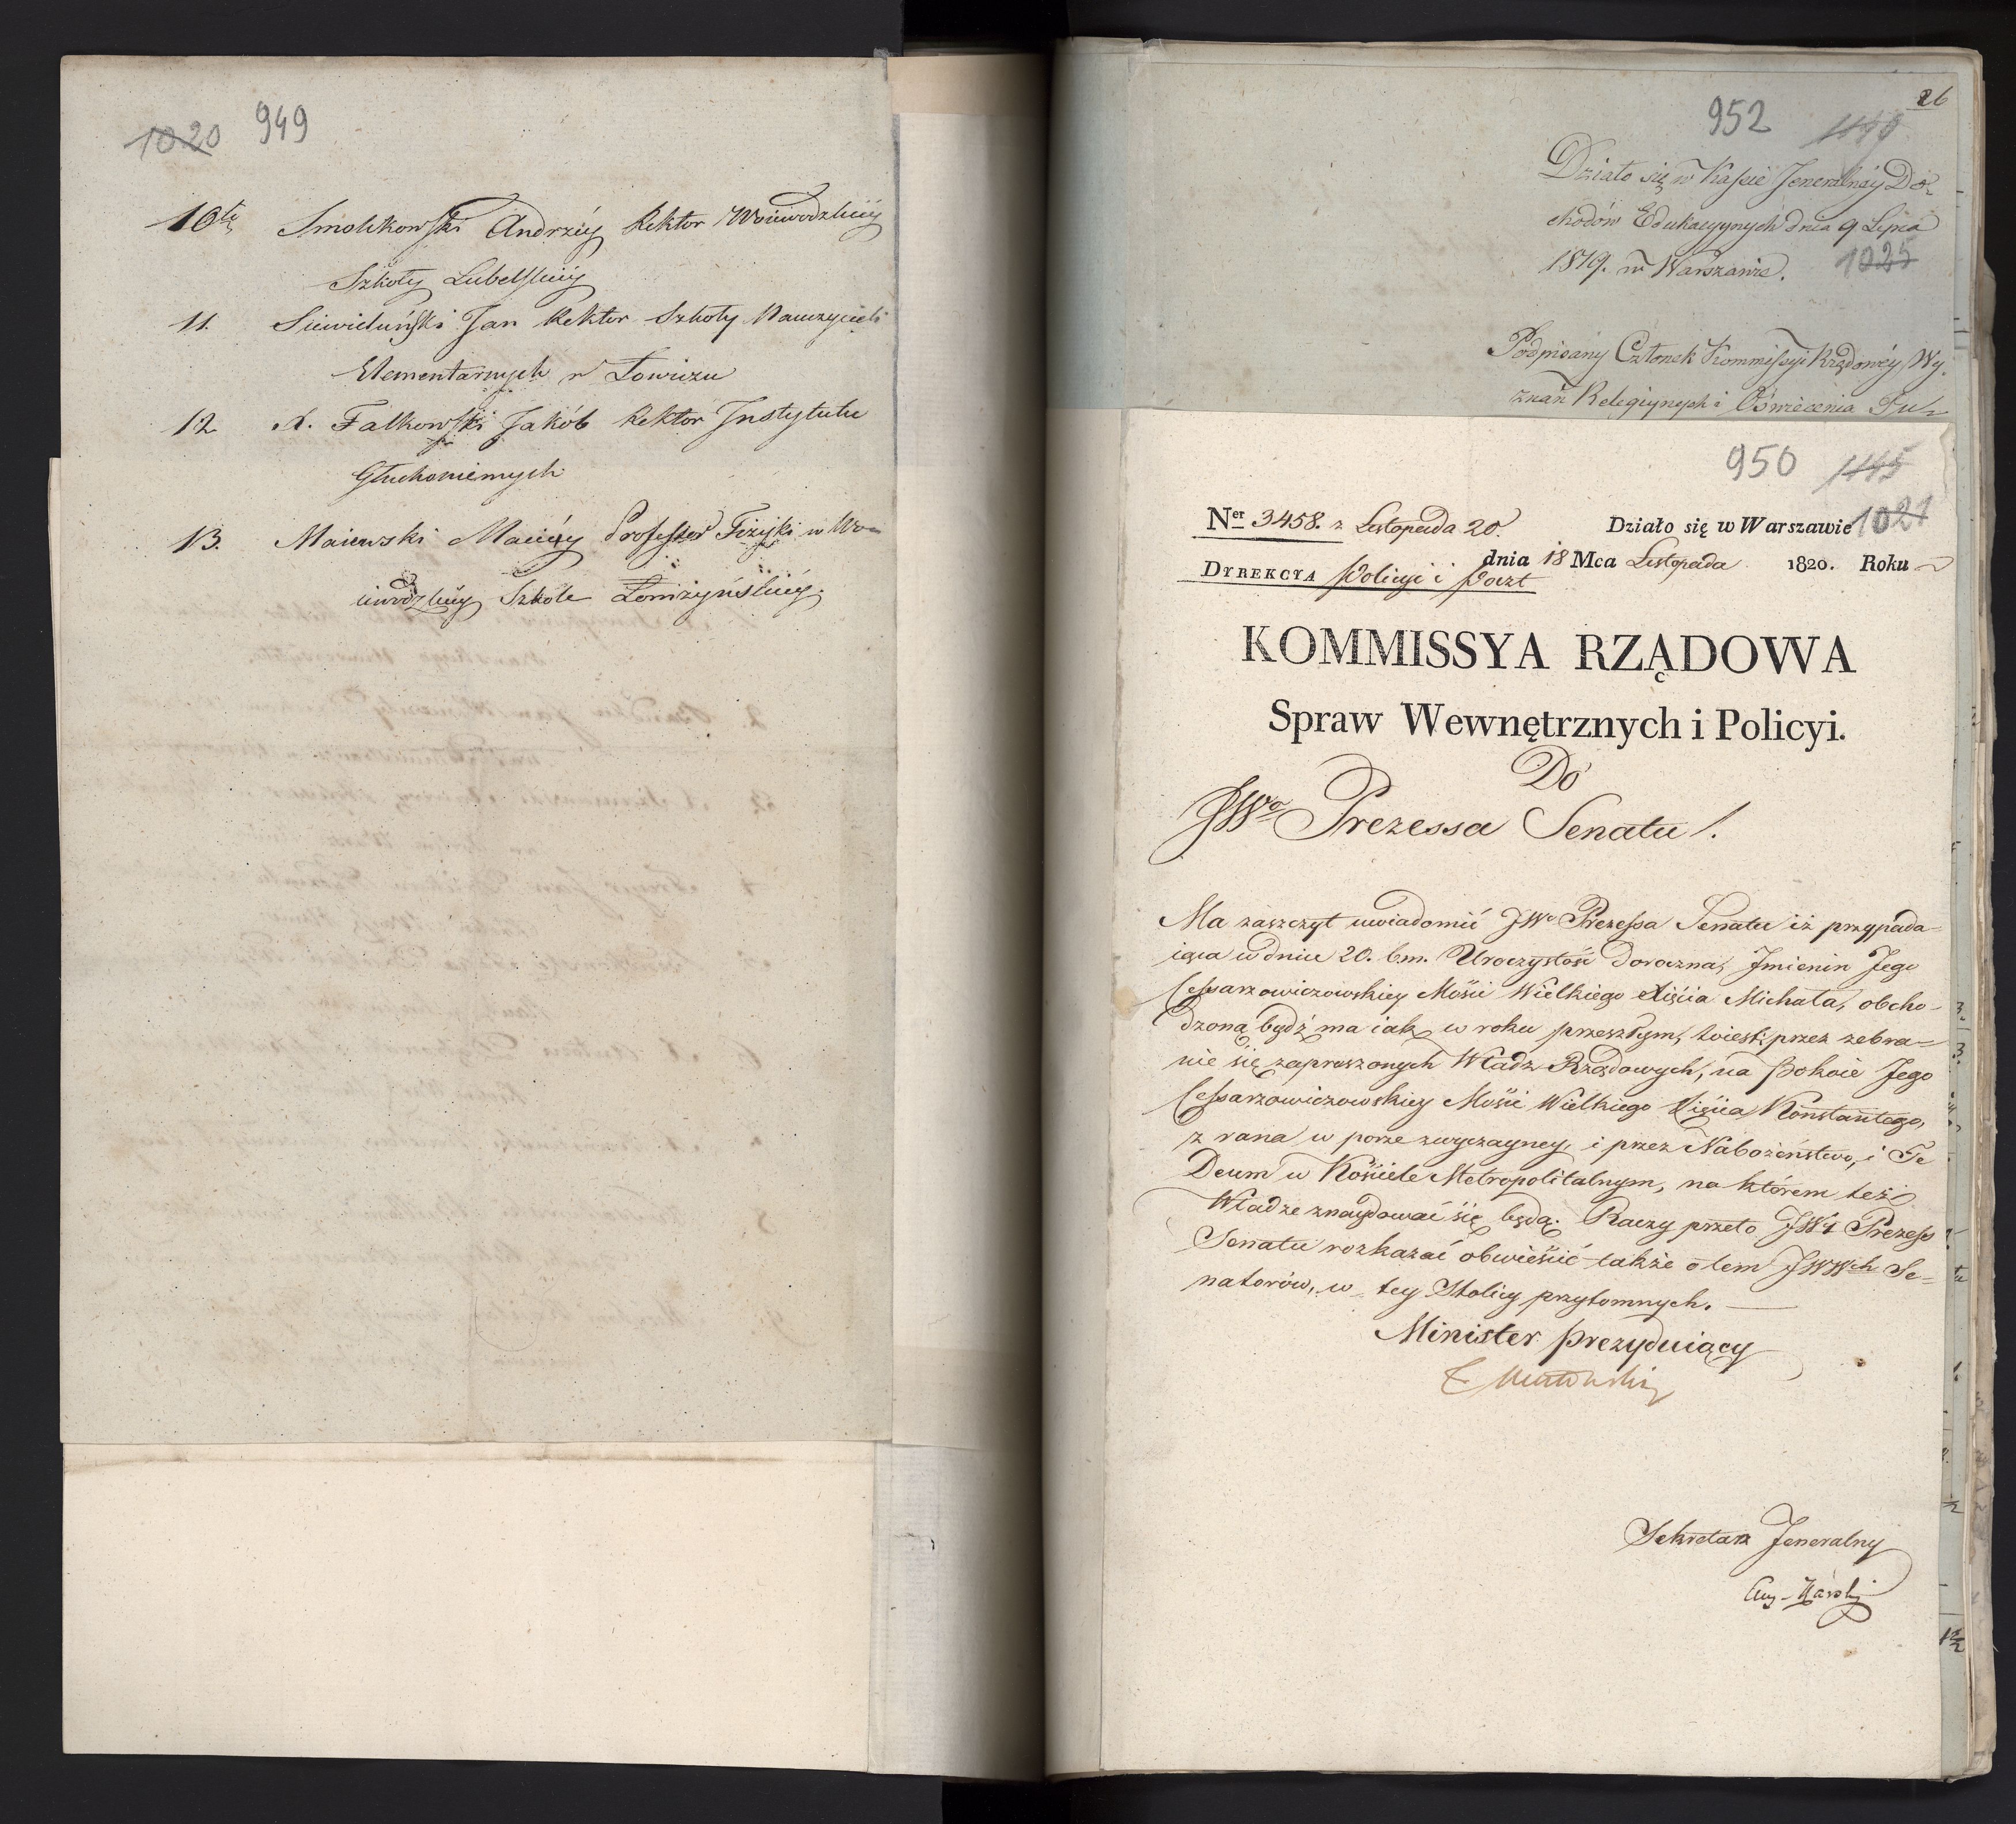 1020 949
10te Smolikowski Andrzéy Rektor Woiewodzkiéy
Szkoły Lubelskiéy
11. Siewieluński Jan Rektor Szkoły Nauczycieli
Elementarnych w Łowiczu
12 X. Falkowski Jakób Rektor Instytutu
Głuchoniemych
13. Maiewski Maciéy Professor Fizyki w Wo-
iewodzkiéy Szkole Łomżyńskiéy.
26
952
Działo się w Kassie Jeneralnéy Do-
chodów Edukacyynych dnia 9 Lipca
1819. w Warszawie. 1025
Podpisany Członek Kommissyi Rządowéy Wy-
znań Religiynych i Oświecenia Pu-
950 1145
1021
Ner 3458. z Listopada 20. Działo się w Warszawie
dnia 18 Mca Listopada 1820. Roku
DYREKCYA Policyi i Poczt
KOMMISSYA RZĄDOWA
Spraw Wewnętrznych i Policyi.
Do
JWo Prezessa Senatu /.
Ma zaszczyt uwiadomić JWo Prezessa Senatu iż przypada-
iąca w dniu 20. b.m. Uroczystość doroczna, Imienin Jego
Cesarzowiczowskiey Mości Wielkiego Xięcia Michała, obcho-
dzoną bydź ma iak w roku przeszłym, to iest: przez zebra-
nie się zaproszonych Władz Rządowych, na Pokoie Jego
Cesarzowiczowskiey Mości Wielkiego Xięcia Konstantego,
z rana w porze zwyczayney, i przez Nabożeństwo, i Te
Deum w Kościele Metropolitalnym, na którem też
Władze znaydować się będą. Raczy przeto JWy Prezess
Senatu rozkazać obwieścić także o tem JWWch Se-
natorów, w tey Stolicy przytomnych.
Minister Prezyduiący
Sekretarz Jeneralny